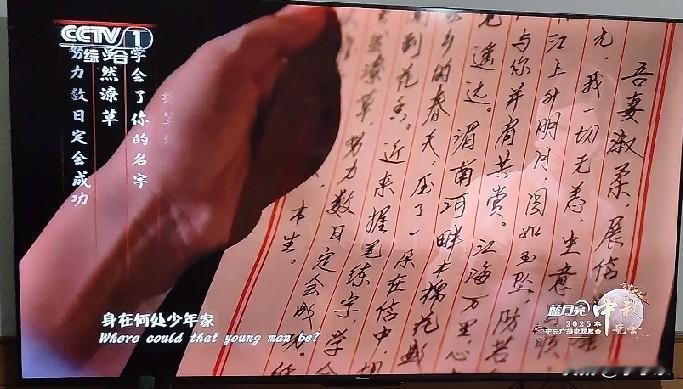 CCTV 1
综合
学会了你的名字
虽然潦草
努力数日定会成功
吾妻淑柔,展信
允,我一切无恙,生意
江上升明月,圆如玉坠,仿若
与你并肩共赏。江海万里,心
遥远。湄南河畔木棉花
乡的春天,压了一朵在信中,
到花香。近来握笔练字,学
然潦草,努力数日定会成功。
木生。
身在何处少年家
Where could that young man be?
蓝月亮
2025年
中央广播电视总台
中秋晚会